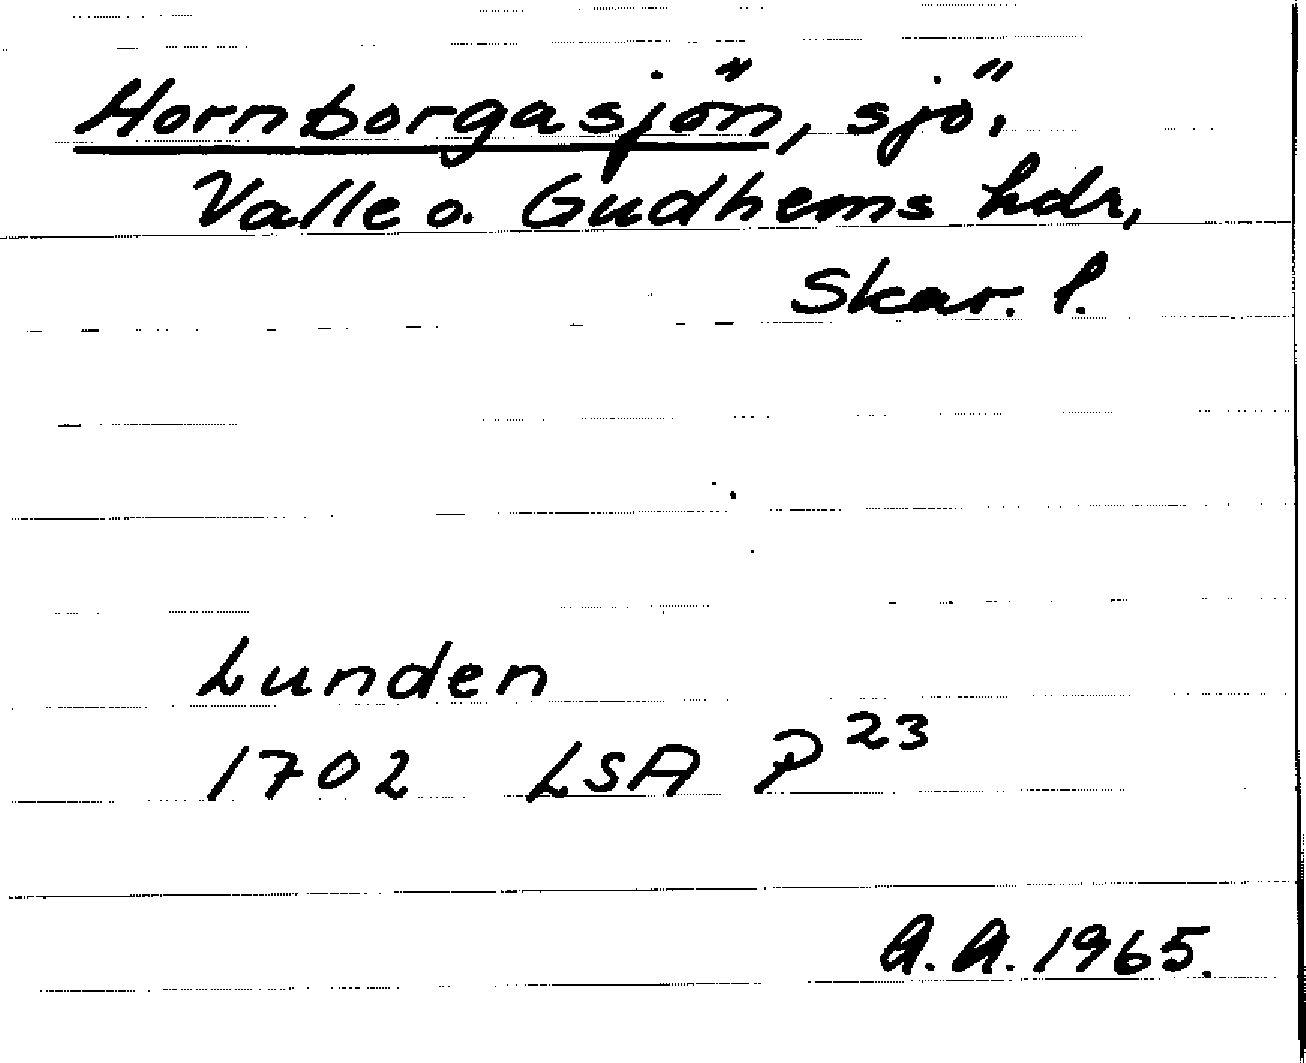 Hornborgasjön, sjö,
Valle o. Gudhems hdr,
Skar. l.
Lunden
1702 LSA P23
A.A. 1965.